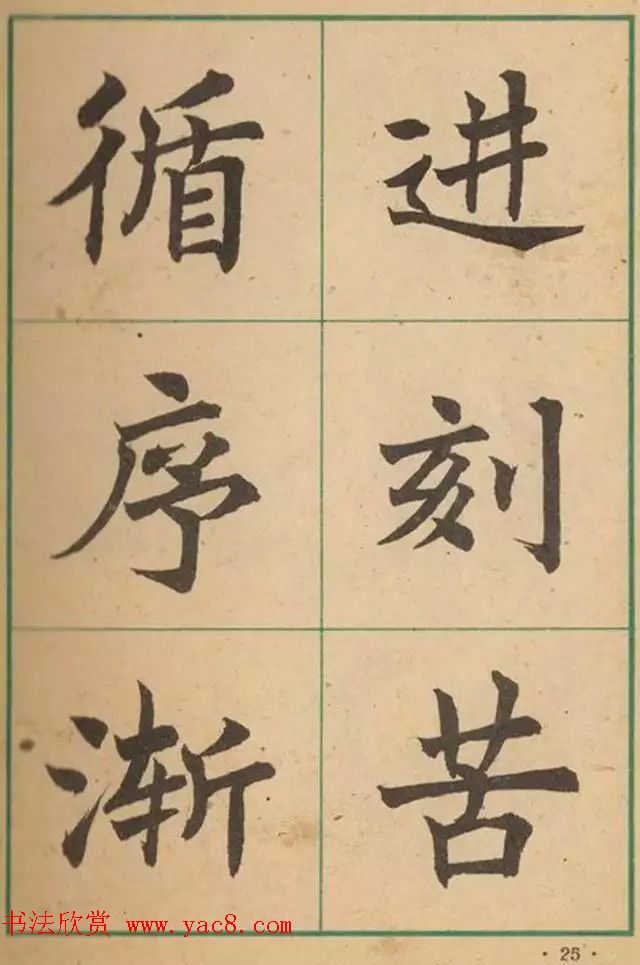 循序渐
进刻苦
书法欣赏 www.yac8.com
·25·